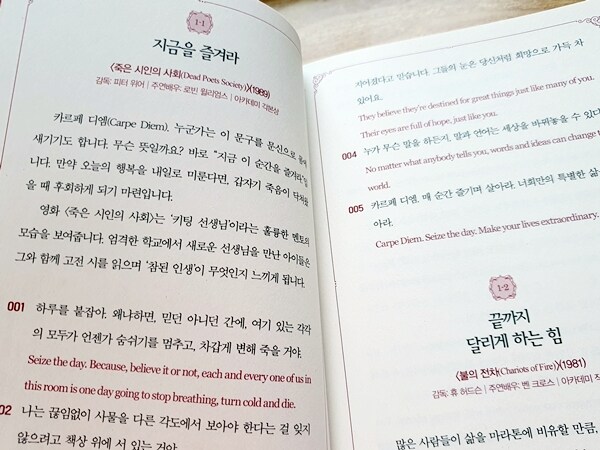 1-1
지금을 즐겨라
〈죽은 시인의 사회(Dead Poets Society)〉(1989)
감독: 피터 위어 | 주연배우: 로빈 윌리엄스 | 아카데미 각본상
카르페 디엠(Carpe Diem). 누군가는 이 문구를 문신으로
새기기도 합니다. 무슨 뜻일까요? 바로 "지금 이 순간을 즐겨라"
니다. 만약 오늘의 행복을 내일로 미룬다면, 갑자기 죽음이 닥쳐
을 때 후회하게 되기 마련입니다.
영화 〈죽은 시인의 사회〉는 '키팅 선생님'이라는 훌륭한 멘토의
모습을 보여줍니다. 엄격한 학교에서 새로운 선생님을 만난 아이들은
그와 함께 고전 시를 읽으며 '참된 인생'이 무엇인지 느끼게 됩니다.
001 하루를 붙잡아. 왜냐하면, 믿던 아니던 간에, 여기 있는 각각
의 모두가 언젠가 숨쉬기를 멈추고, 차갑게 변해 죽을 거야.
Seize the day. Because, believe it or not, each and every one of us in
this room is one day going to stop breathing, turn cold and die.
02 나는 끊임없이 사물을 다른 각도에서 보아야 한다는 걸 잊지
않으려고 책상 위에 서 있는 거야.
지어졌다고 믿습니다. 그들의 눈은 당신처럼 희망으로 가득 차
있어요.
They believe they're destined for great things just like many of you.
Their eyes are full of hope, just like you.
004 누가 무슨 말을 하든지, 말과 언어는 세상을 바꿔놓을 수 있다
No matter what anybody tells you, words and ideas can change
world.
005 카르페 디엠. 매 순간 즐기며 살아라. 너희만의 특별한 삶
아라.
Carpe Diem. Seize the day. Make your lives extraordinary.
1-2
끝까지
달리게 하는 힘
〈불의 전차(Chariots of Fire)〉(1981)
감독: 휴 허드슨 | 주연배우: 벤 크로스 | 아카데미
많은 사람들이 삶을 마라톤에 비유할 만큼,